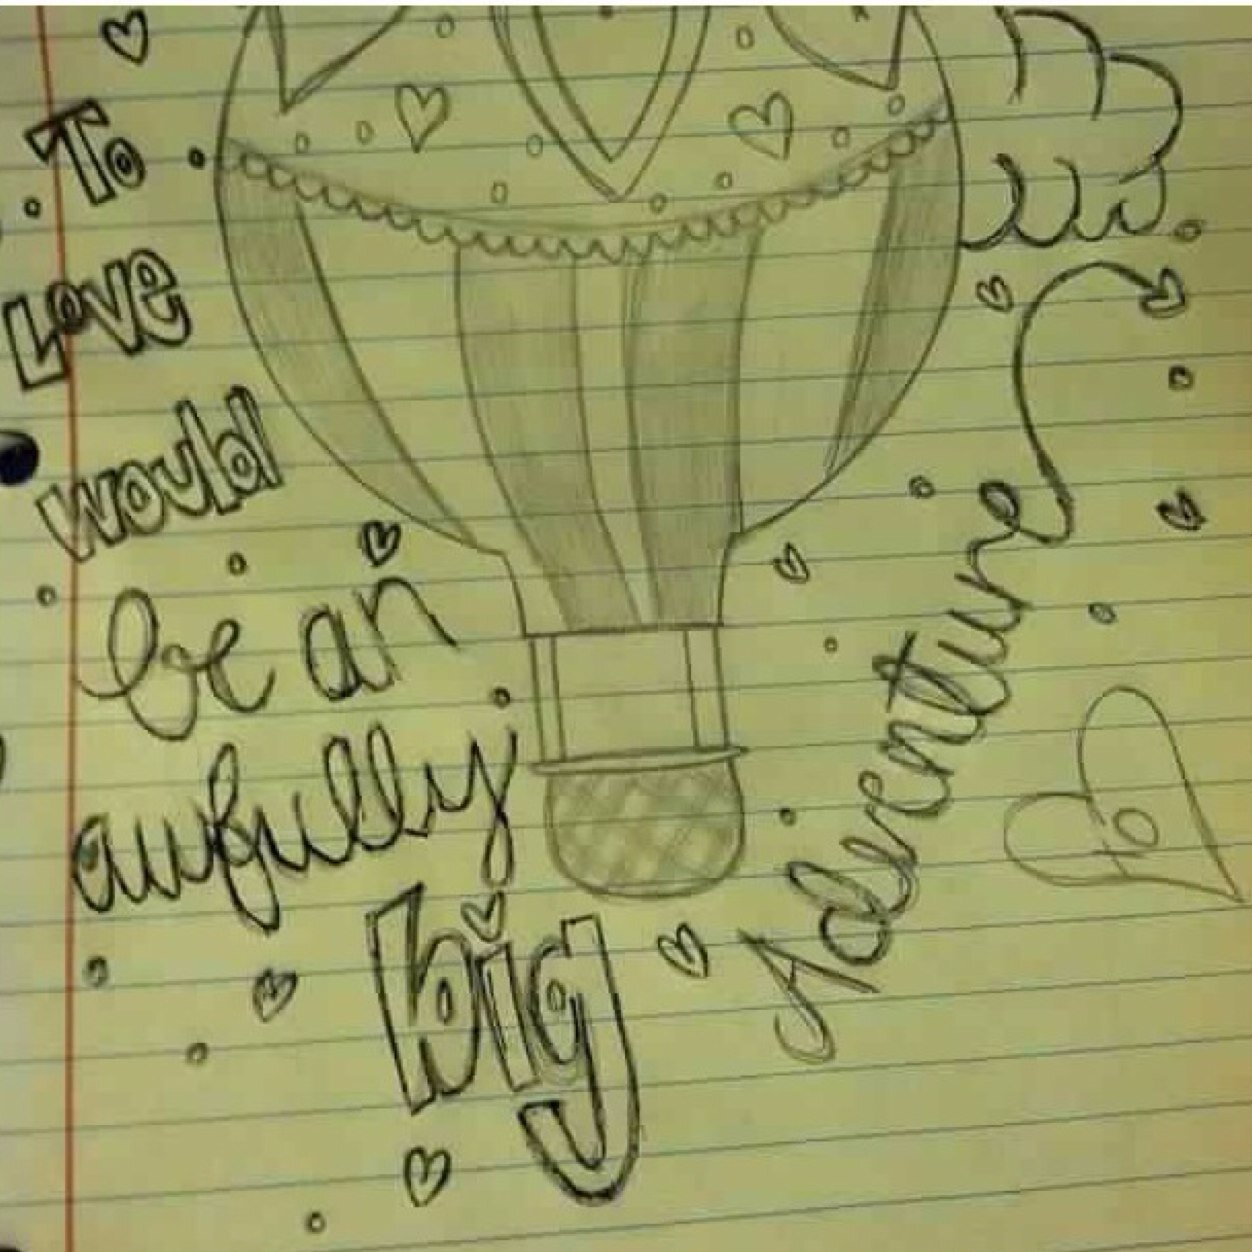 To
Love
would
be an
awfully
big
Adventure